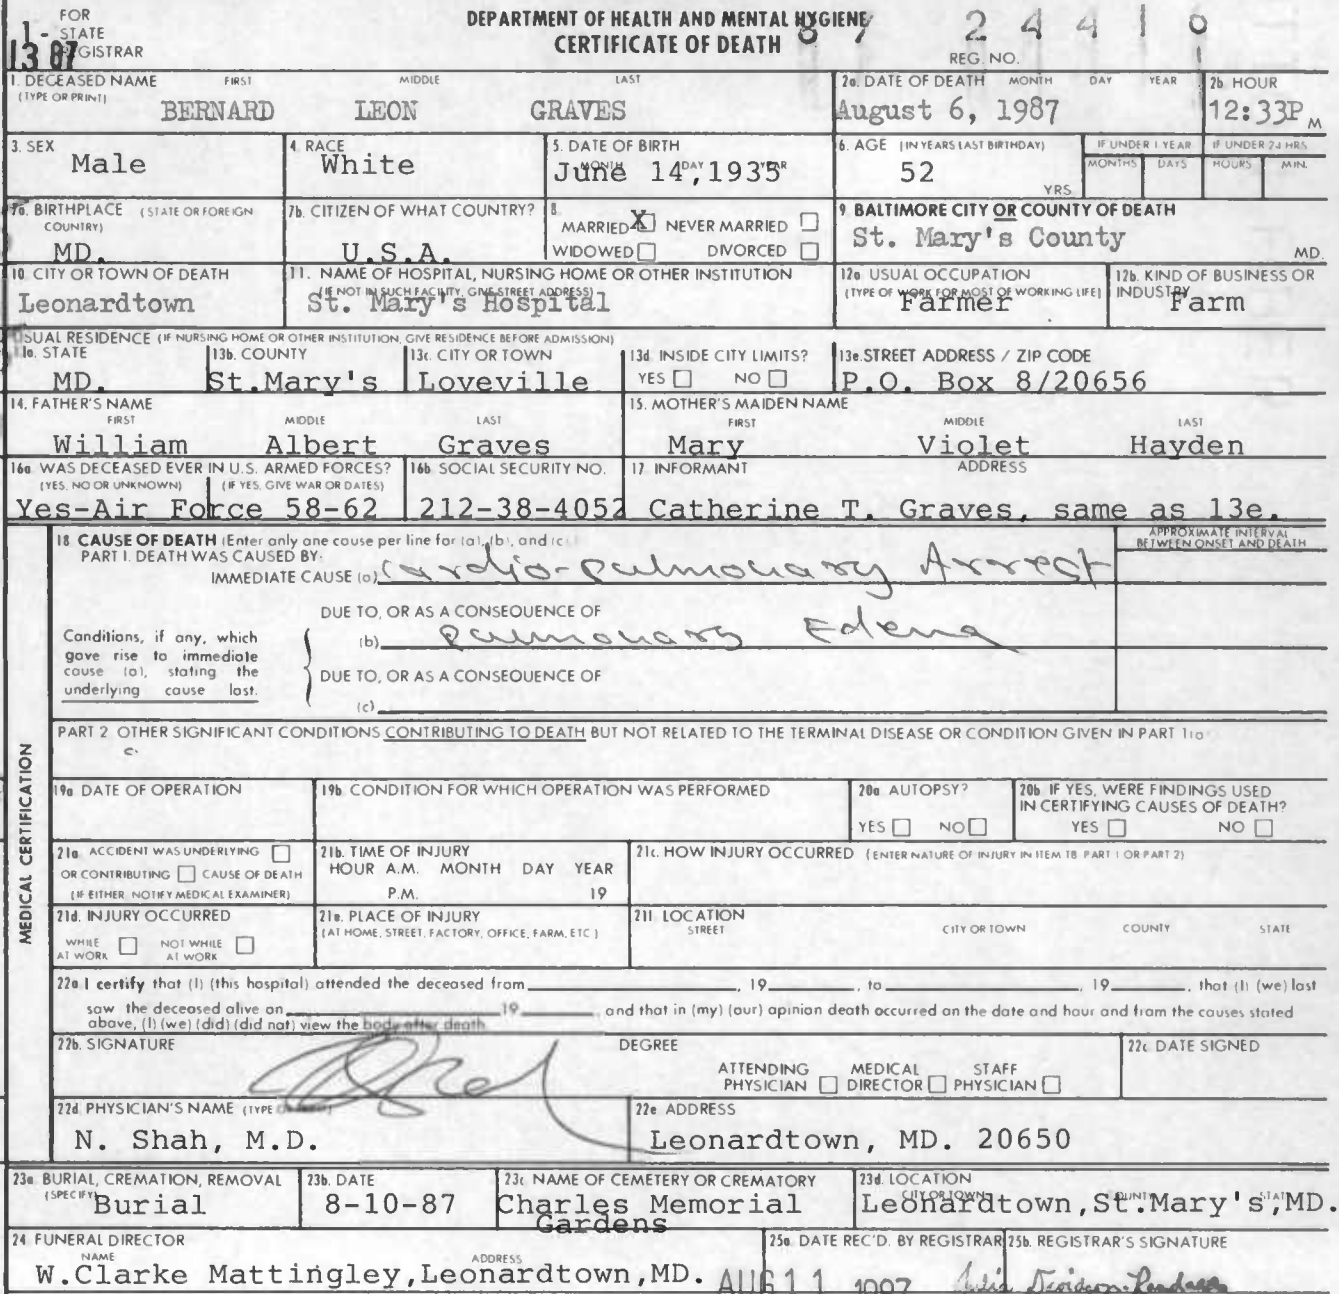 FOR
1- STATE
REGISTRAR
13 87
DEPARTMENT OF HEALTH AND MENTAL HYGIENE
CERTIFICATE OF DEATH
87 24416
REG. NO.
1. DECEASED NAME FIRST MIDDLE LAST
(TYPE OR PRINT)
BERNARD LEON GRAVES
2a. DATE OF DEATH MONTH DAY YEAR
August 6, 1987
2b HOUR
12:33P M
3. SEX
Male
4. RACE
White
5. DATE OF BIRTH
MONTH DAY YEAR
June 14, 1935
6. AGE (IN YEARS LAST BIRTHDAY)
52
YRS
IF UNDER 1 YEAR
MONTHS DAYS
IF UNDER 24 HRS
HOURS MIN.
7a. BIRTHPLACE (STATE OR FOREIGN
COUNTRY)
MD.
7b. CITIZEN OF WHAT COUNTRY?
U.S.A.
8.
MARRIED X NEVER MARRIED
WIDOWED DIVORCED
9. BALTIMORE CITY OR COUNTY OF DEATH
St. Mary's County
MD.
10. CITY OR TOWN OF DEATH
Leonardtown
11. NAME OF HOSPITAL, NURSING HOME OR OTHER INSTITUTION
(IF NOT IN SUCH FACILITY, GIVE STREET ADDRESS)
St. Mary's Hospital
12a. USUAL OCCUPATION
(TYPE OF WORK FOR MOST OF WORKING LIFE)
Farmer
12b. KIND OF BUSINESS OR
INDUSTRY
Farm
USUAL RESIDENCE (IF NURSING HOME OR OTHER INSTITUTION, GIVE RESIDENCE BEFORE ADMISSION)
13a. STATE
MD.
13b. COUNTY
St.Mary's
13c. CITY OR TOWN
Loveville
13d. INSIDE CITY LIMITS?
YES NO
13e. STREET ADDRESS / ZIP CODE
P.O. Box 8/20656
14. FATHER'S NAME
FIRST MIDDLE LAST
William Albert Graves
15. MOTHER'S MAIDEN NAME
FIRST MIDDLE LAST
Mary Violet Hayden
16a. WAS DECEASED EVER IN U.S. ARMED FORCES?
(YES, NO OR UNKNOWN) (IF YES, GIVE WAR OR DATES)
Yes-Air Force 58-62
16b. SOCIAL SECURITY NO.
212-38-4052
17. INFORMANT ADDRESS
Catherine T. Graves, same as 13e.
MEDICAL CERTIFICATION
18 CAUSE OF DEATH (Enter only one cause per line for (a), (b), and (c).)
PART I. DEATH WAS CAUSED BY:
IMMEDIATE CAUSE (a) Cardio-pulmonary Arrest
APPROXIMATE INTERVAL
BETWEEN ONSET AND DEATH
DUE TO, OR AS A CONSEQUENCE OF
(b) pulmonary Edema
Conditions, if any, which
gave rise to immediate
cause (a), stating the
underlying cause last.
DUE TO, OR AS A CONSEQUENCE OF
(c)
PART 2 OTHER SIGNIFICANT CONDITIONS CONTRIBUTING TO DEATH BUT NOT RELATED TO THE TERMINAL DISEASE OR CONDITION GIVEN IN PART 1(a)
19a DATE OF OPERATION
19b. CONDITION FOR WHICH OPERATION WAS PERFORMED
20a AUTOPSY?
YES NO
20b. IF YES, WERE FINDINGS USED
IN CERTIFYING CAUSES OF DEATH?
YES NO
21a. ACCIDENT WAS UNDERLYING
OR CONTRIBUTING CAUSE OF DEATH
(IF EITHER, NOTIFY MEDICAL EXAMINER)
21b. TIME OF INJURY
HOUR A.M. MONTH DAY YEAR
P.M. 19
21c. HOW INJURY OCCURRED (ENTER NATURE OF INJURY IN ITEM 18 PART 1 OR PART 2)
21d. INJURY OCCURRED
WHILE NOT WHILE
AT WORK AT WORK
21e. PLACE OF INJURY
(AT HOME, STREET, FACTORY, OFFICE, FARM, ETC.)
21f. LOCATION
STREET CITY OR TOWN COUNTY STATE
22a I certify that (I) (this hospital) attended the deceased from , 19 , to , 19 , that (I) (we) last
saw the deceased alive on 19 , and that in (my) (our) opinion death occurred on the date and hour and from the causes stated
above, (I) (we) (did) (did not) view the body after death
22b. SIGNATURE
DEGREE
ATTENDING MEDICAL STAFF
PHYSICIAN DIRECTOR PHYSICIAN
22c DATE SIGNED
22d. PHYSICIAN'S NAME (TYPE
N. Shah, M.D.
22e ADDRESS
Leonardtown, MD. 20650
23a. BURIAL, CREMATION, REMOVAL
(SPECIFY)
Burial
23b. DATE
8-10-87
23c NAME OF CEMETERY OR CREMATORY
Charles Memorial
Gardens
23d. LOCATION
CITY OR TOWN COUNTY STATE
Leonardtown,St.Mary's,MD.
24 FUNERAL DIRECTOR
NAME ADDRESS
W.Clarke Mattingley,Leonardtown,MD.
25a. DATE REC'D. BY REGISTRAR
AUG 11 1987
25b. REGISTRAR'S SIGNATURE